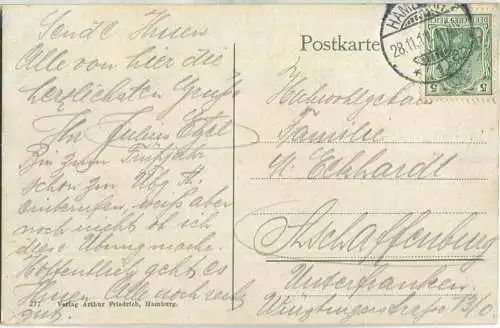 Sende Ihnen
Alle von hier die
herzlichsten Grüße
Ihr Julius Etzel
Bin zum Frühjahr
schon zur Übg. A.
einberufen, weiß aber
noch nicht ob ich
diese Übung mache.
Hoffentlich geht es
Ihnen Alle noch recht
gut.
277 Verlag Arthur Friedrich, Hamburg.
Postkarte
HAMBURG
28.11.11
5 5
Hochwohlgeboren
Familie
Eckhardt
Aschaffenburg
Unterfranken
Würzburgerstraße 13/0.